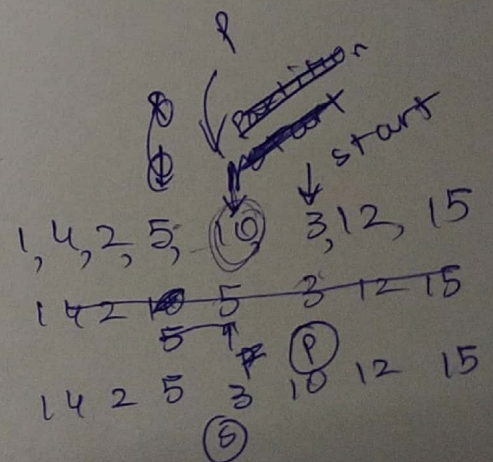 P
start
1, 4, 2, 5, 10, 3, 12, 15
1 4 2 5 3 12 15
5
1 4 2 5 3 10 12 15
P
S